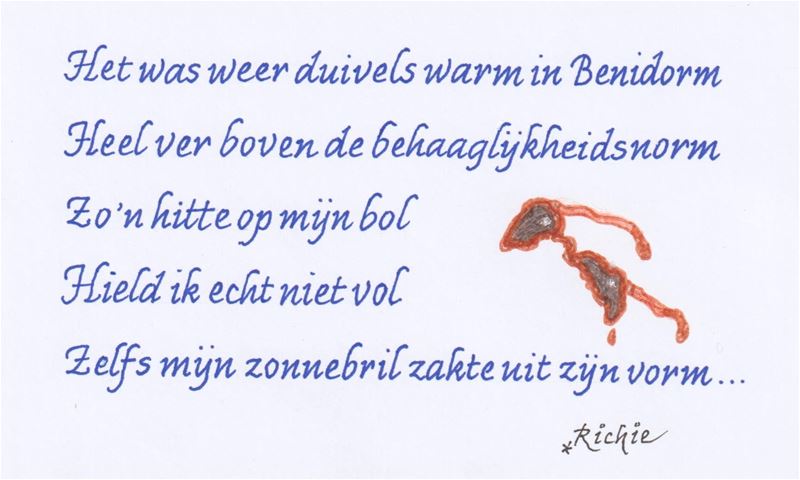 Het was weer duivels warm in Benidorm
Heel ver boven de behaaglijkheidsnorm
Zo'n hitte op mijn bol
Hield ik echt niet vol
Zelfs mijn zonnebril zakte uit zijn vorm...
*Richie